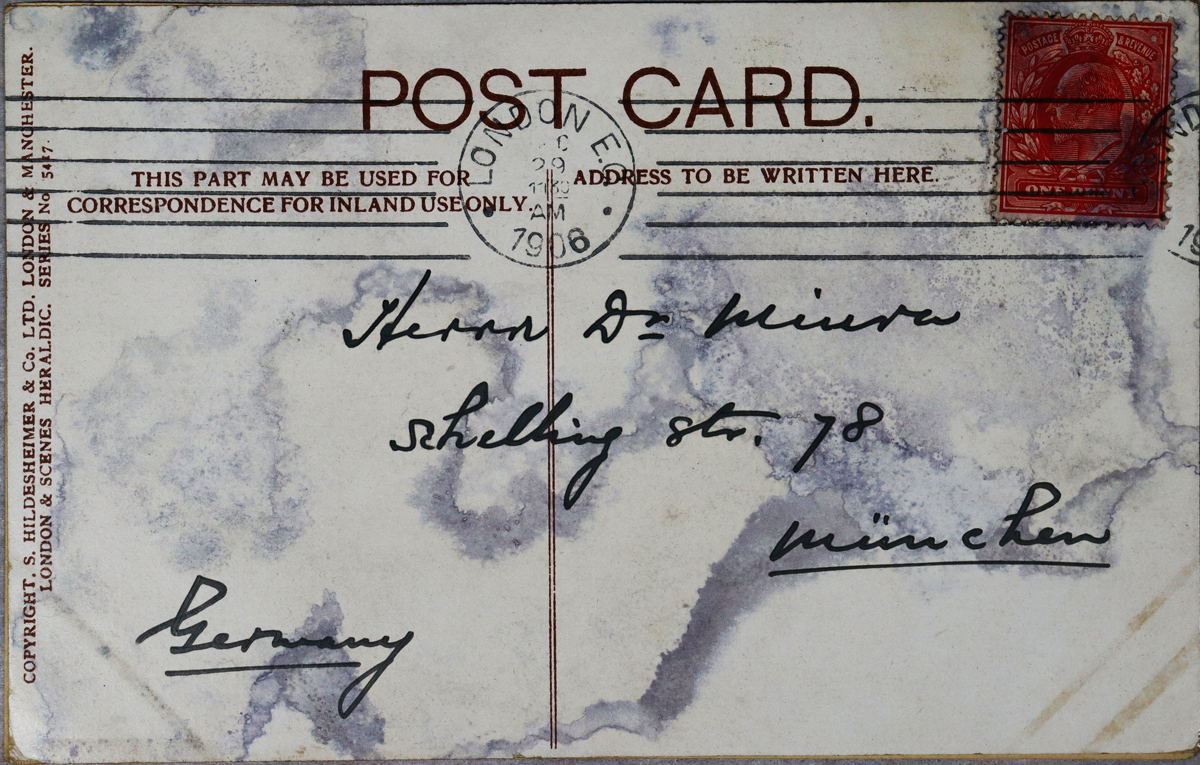 POST CARD.
THIS PART MAY BE USED FOR
CORRESPONDENCE FOR INLAND USE ONLY.
ADDRESS TO BE WRITTEN HERE.
LONDON E.C
29
AM
1906
POSTAGE & REVENUE
ONE PENNY
Herrn Dr Miura
Schelling str. 78
München
Germany
COPYRIGHT. S. HILDESHEIMER & Co. LTD. LONDON & MANCHESTER.
LONDON & SCENES HERALDIC. SERIES No 5417.